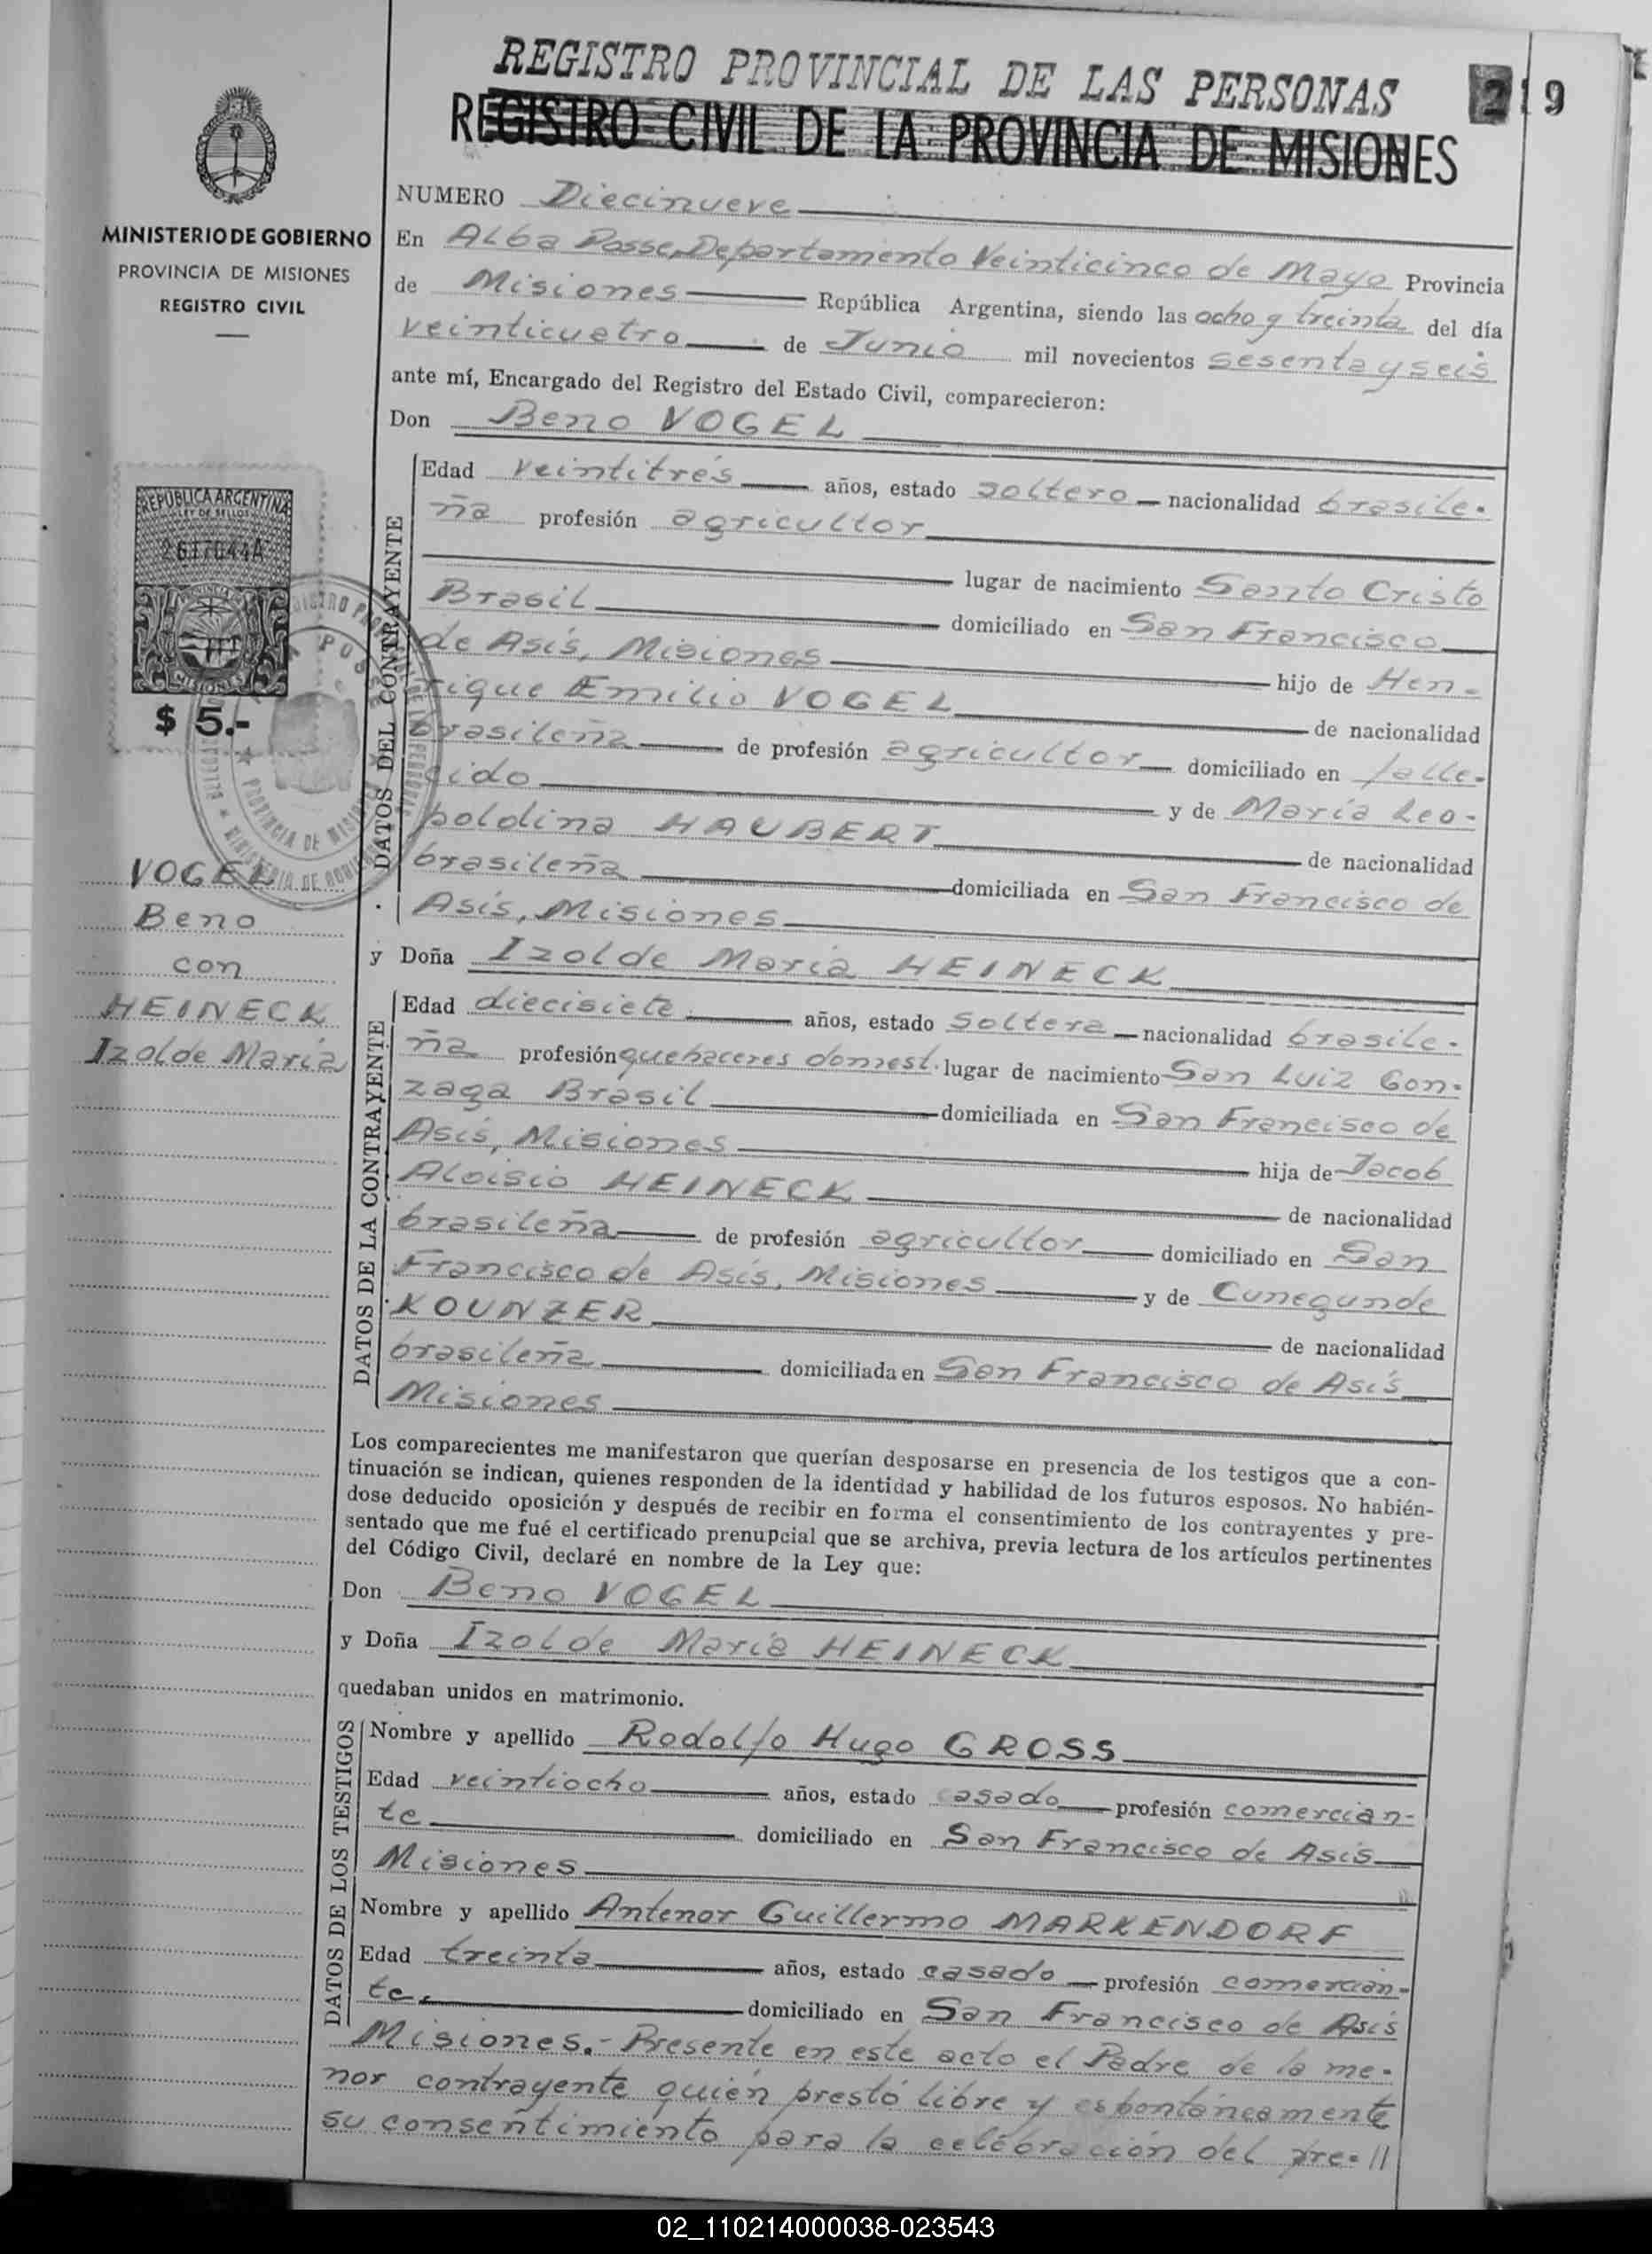 REGISTRO PROVINCIAL DE LAS PERSONAS
219
REGISTRO CIVIL DE LA PROVINCIA DE MISIONES
MINISTERIO DE GOBIERNO
PROVINCIA DE MISIONES
REGISTRO CIVIL
NUMERO Diecinueve
En Alba Posse, Departamento Veinticinco de Mayo Provincia
de Misiones República Argentina, siendo las ocho y treinta del día
veinticuatro de Junio mil novecientos sesenta y seis
ante mí, Encargado del Registro del Estado Civil, comparecieron:
Don Beno VOGEL
REPUBLICA ARGENTINA
LEY DE SELLOS
2617044A
PROVINCIA DE
MISIONES
$ 5.-
DATOS DEL CONTRAYENTE
Edad veintitrés años, estado soltero nacionalidad brasile-
ña profesión agricultor
lugar de nacimiento Santo Cristo
Brasil domiciliado en San Francisco
de Asís, Misiones hijo de Hen-
rique Emilio VOGEL de nacionalidad
brasileña de profesión agricultor domiciliado en falle-
cido y de María Leo-
poldina HAUBERT de nacionalidad
brasileña domiciliada en San Francisco de
Asís, Misiones
VOGEL
Beno
con
HEINECK
Izolde María
y Doña Izolde María HEINECK
DATOS DE LA CONTRAYENTE
Edad diecisiete años, estado soltera nacionalidad brasile-
ña profesión quehaceres domest. lugar de nacimiento San Luiz Gon-
zaga Brasil domiciliada en San Francisco de
Asís, Misiones hija de Jacob
Aloisio HEINECK de nacionalidad
brasileña de profesión agricultor domiciliado en San
Francisco de Asís, Misiones y de Cunegunde
KOUNZER de nacionalidad
brasileña domiciliada en San Francisco de Asís
Misiones
Los comparecientes me manifestaron que querían desposarse en presencia de los testigos que a con-
tinuación se indican, quienes responden de la identidad y habilidad de los futuros esposos. No habién-
dose deducido oposición y después de recibir en forma el consentimiento de los contrayentes y pre-
sentado que me fué el certificado prenupcial que se archiva, previa lectura de los artículos pertinentes
del Código Civil, declaré en nombre de la Ley que:
Don Beno VOGEL
y Doña Izolde María HEINECK
quedaban unidos en matrimonio.
DATOS DE LOS TESTIGOS
Nombre y apellido Rodolfo Hugo GROSS
Edad veintiocho años, estado casado profesión comercian-
te domiciliado en San Francisco de Asís
Misiones
Nombre y apellido Antenor Guillermo MARKENDORF
Edad treinta años, estado casado profesión comercian-
te. domiciliado en San Francisco de Asís
Misiones.- Presente en este acto el Padre de la me-
nor contrayente quién prestó libre y espontáneamente
su consentimiento para la celebración del pre-//
02_110214000038-023543